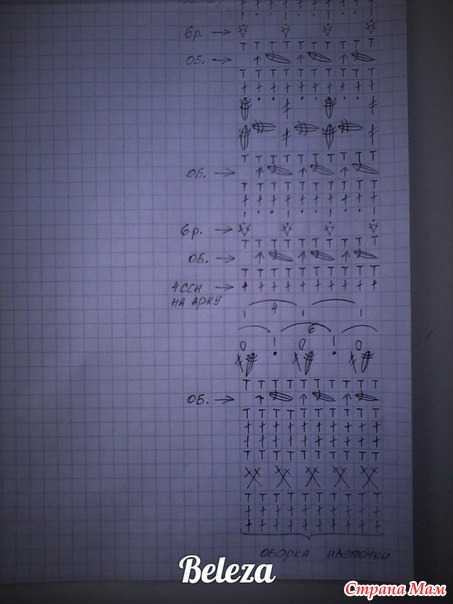 бр.
ОБ.
ОБ.
бр.
ОБ.
4ССН
НА АРКУ
4
6
ОБ.
ОБОРКА цветочки
Beleza
Страна Мам